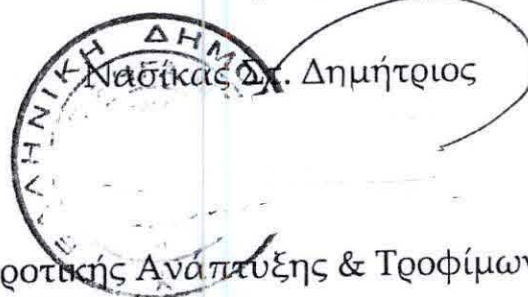 ΕΛΛΗΝΙΚΗ ΔΗΜΟ
Νασίκας Σπ. Δημήτριος
ροτικής Ανάπτυξης & Τροφίμων